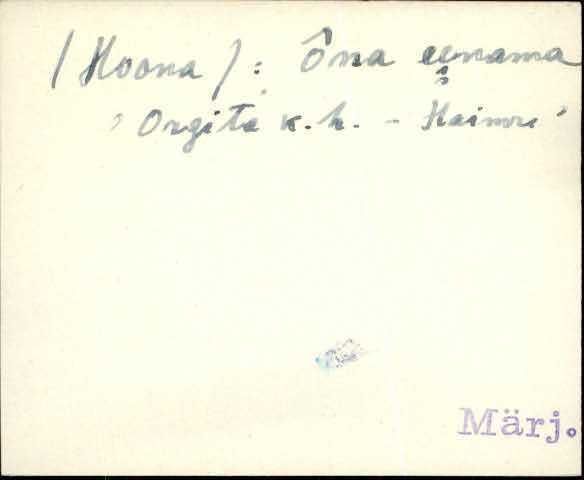 / Hoona / : Ôna eenama
, Orgita k. h. - Haimre '
Märj.